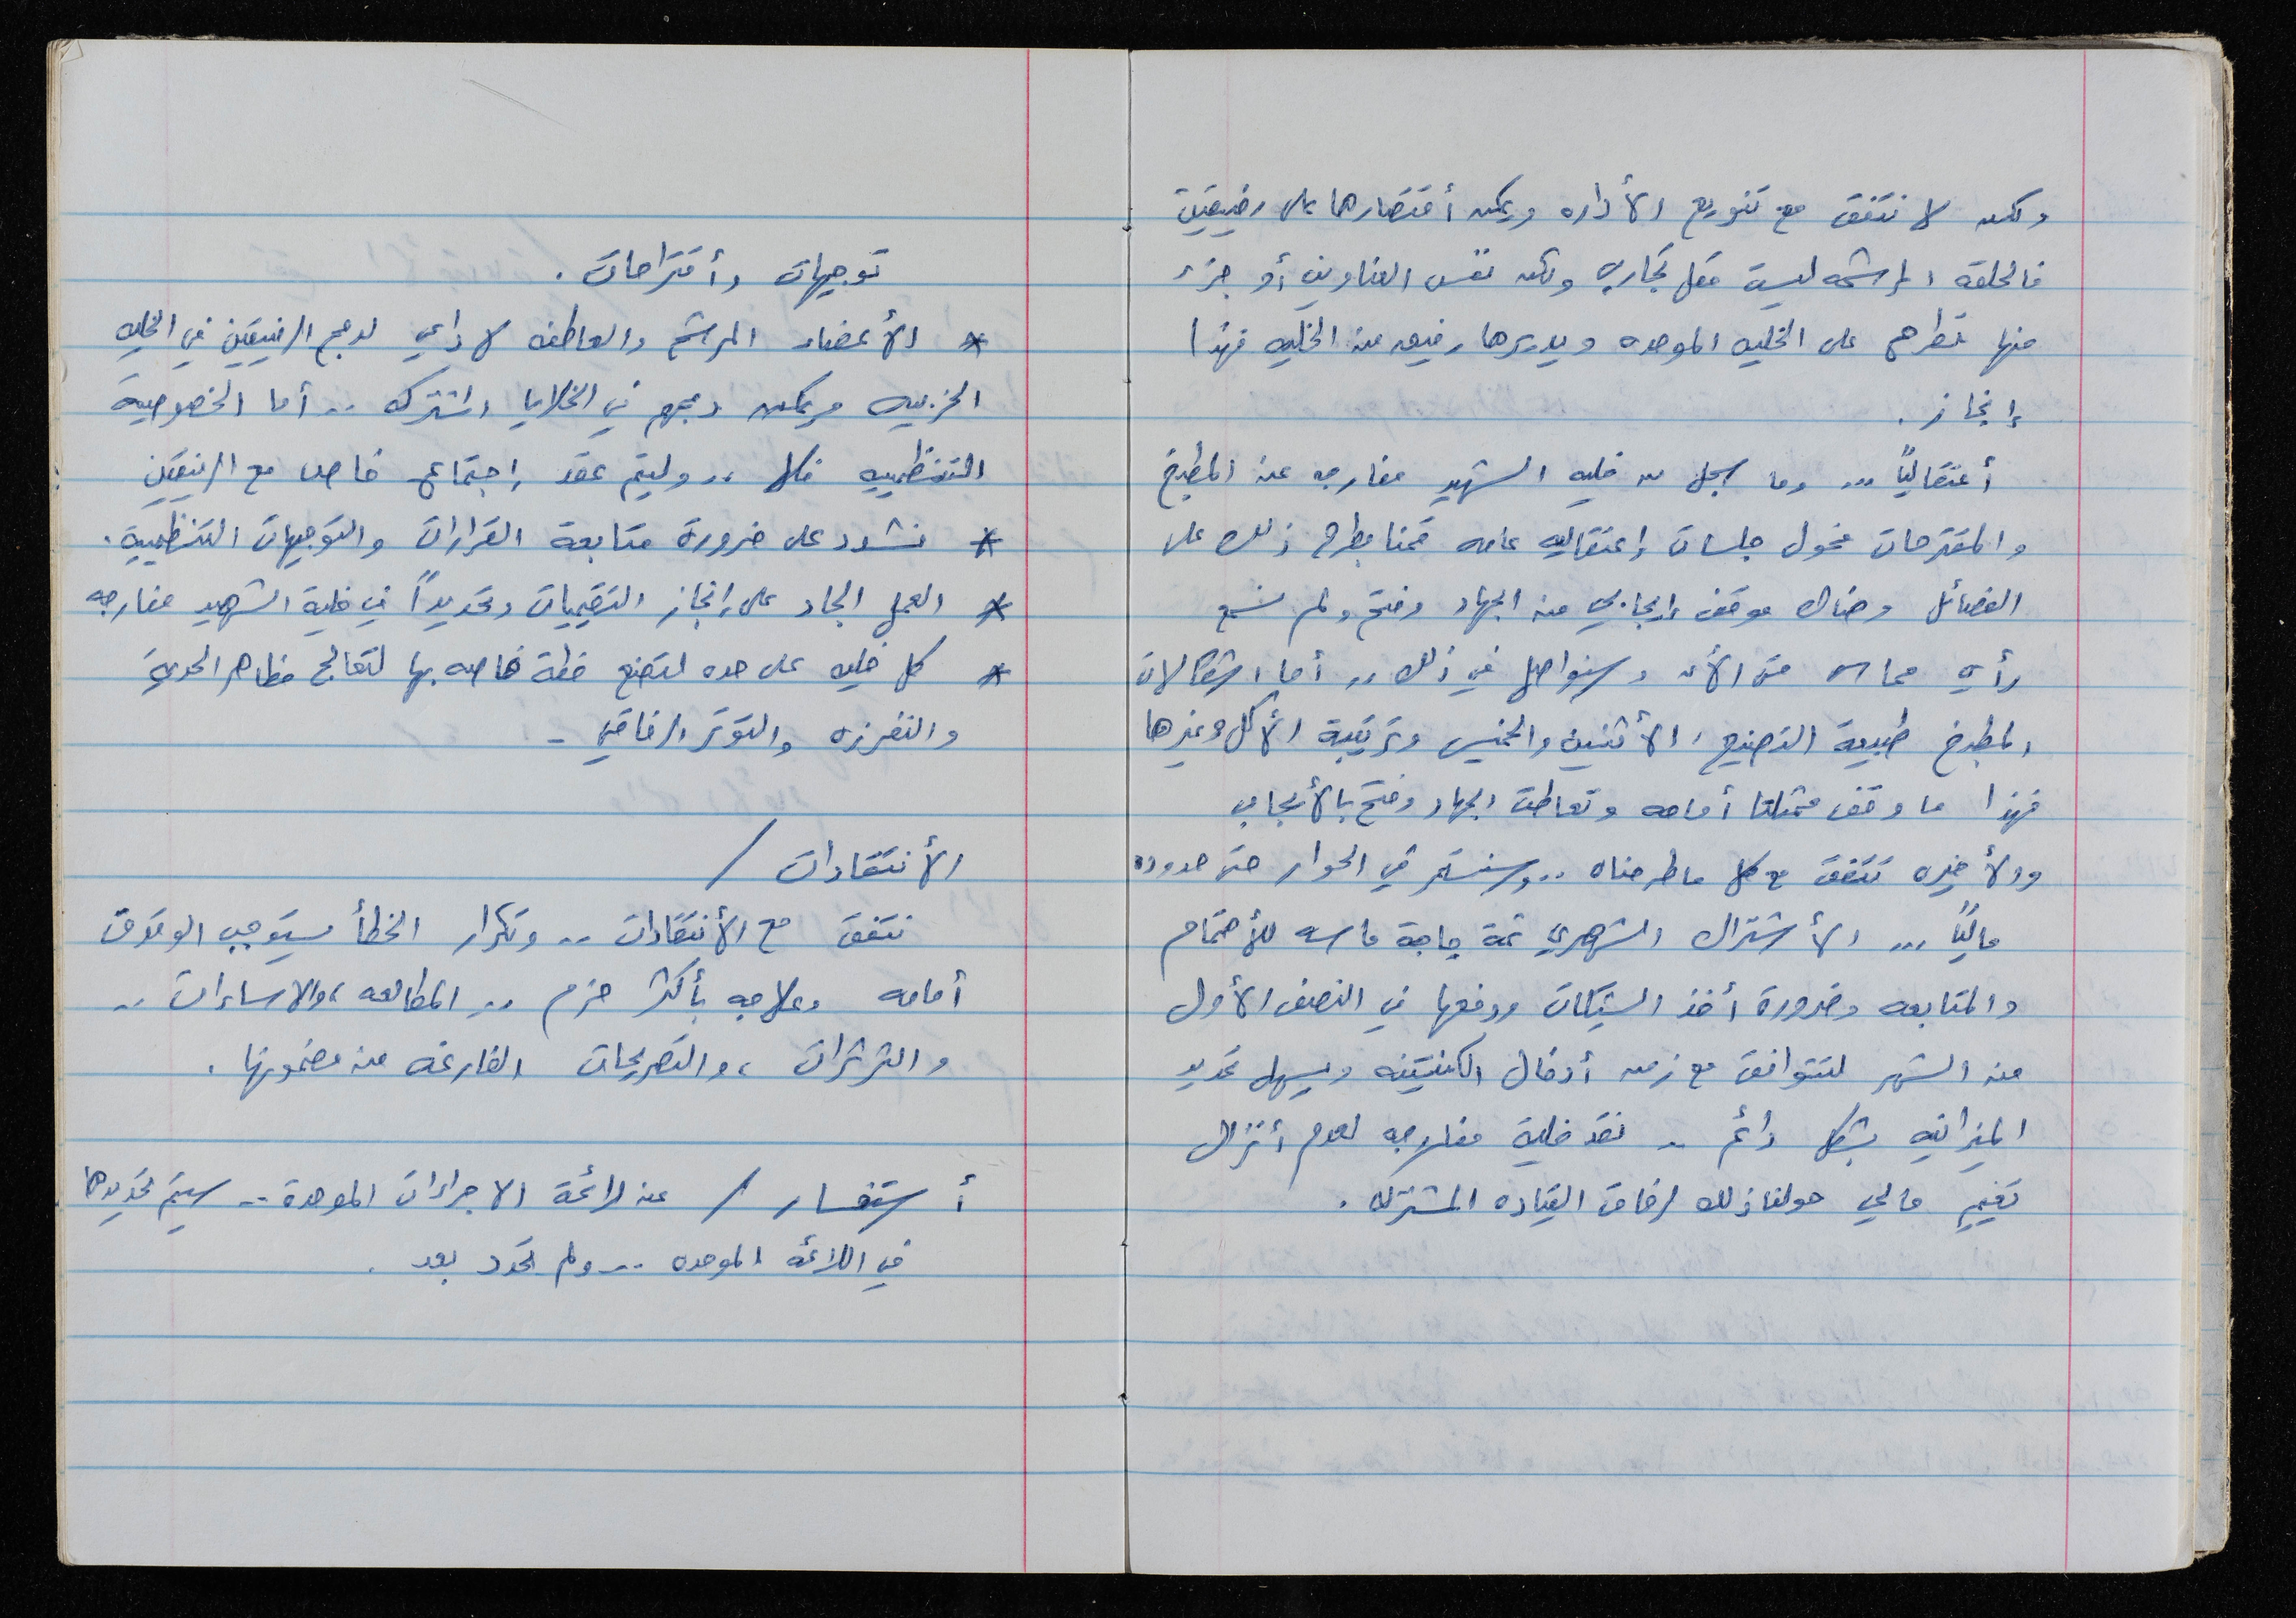 ولكن لا نتفق مع تنويع الأداره ويمكن أقتصارها على رفيقين
فالحلقه المرشحه ليست حقل تجارب ولكن نفس العناوين أو جزء
منها تطرح على الخليه الموحده ويديرها رفيق من الخليه فهذا
إنجاز.
أعتقالياً ... وما سجل من خليه الشهيد مفارجه عن المطبخ
والمقترحات فحول جلسات إعتقاليه عامه قمنا بطرح ذلك على
الفصائل وهناك موقف إيجابي من الجهاد وفتح ولم نسمع
رأي حماس حتى الأن وسنواصل في ذلك .. أما اشكالات
المطبخ طبيعة التصنيع، الأثنين والخميس وتركيبة الأكل وغيرها
فهذا ما وقف ممثلنا أمامه وتعاطت الجهاد وفتح بالأيجاب
والأخيره تتفق مع كل ماطرحناه .. وسنستمر في الحوار حتى حدوده
مالياً ... الأشتراك الشهري ثمة حاجة ماسه للأهتمام
والمتابعه وضرورة أخذ الشيكات ودفعها في النصف الأول
من الشهر لتتوافق مع زمن أدخال الكنتينه ويسهل تحديد
الميزانيه بشكل دائم .. نقد خلية مفارجه لعدم أنزال
تقييم مالي حولنا ذلك لرفاق القياده المشتركه.
توجيهات وأقتراحات.
* الأعضاء المرشح والعاطفه لا داعي لدمج الرفيقين في الخليه
الحزبيه ويمكن دمجهم في الخلايا المشتركه .. أما الخصوصية
التنظيميه فكل .. وليتم عقد إجتماع خاص مع الرفيقين
* نشدد على ضرورة متابعة القرارات والتوجيهات التنظيمية.
* العمل الجاد على إنجاز التقييمات وتحديداً في خلية الشهيد مفارجه
* كل خليه على حده لتضع خطة خاصه بها لتعالج مظاهر الحديه
والنفرزه والتوتر الرفاقي -
الأنتقادات /
نتفق مع الأنتقادات .. وتكرار الخطأ يستوجب الوقوف
أمامه وعلاجه بأكثر حزم .. المطالعه، والاساءات ..
والثرثرات، والتصريحات الفارغه من مضمونها.
أستفسار / عن لائحة الاجراءات الموحدة .. سيتم تحديدها
في اللائحه الموحده .. ولم تحدد بعد.